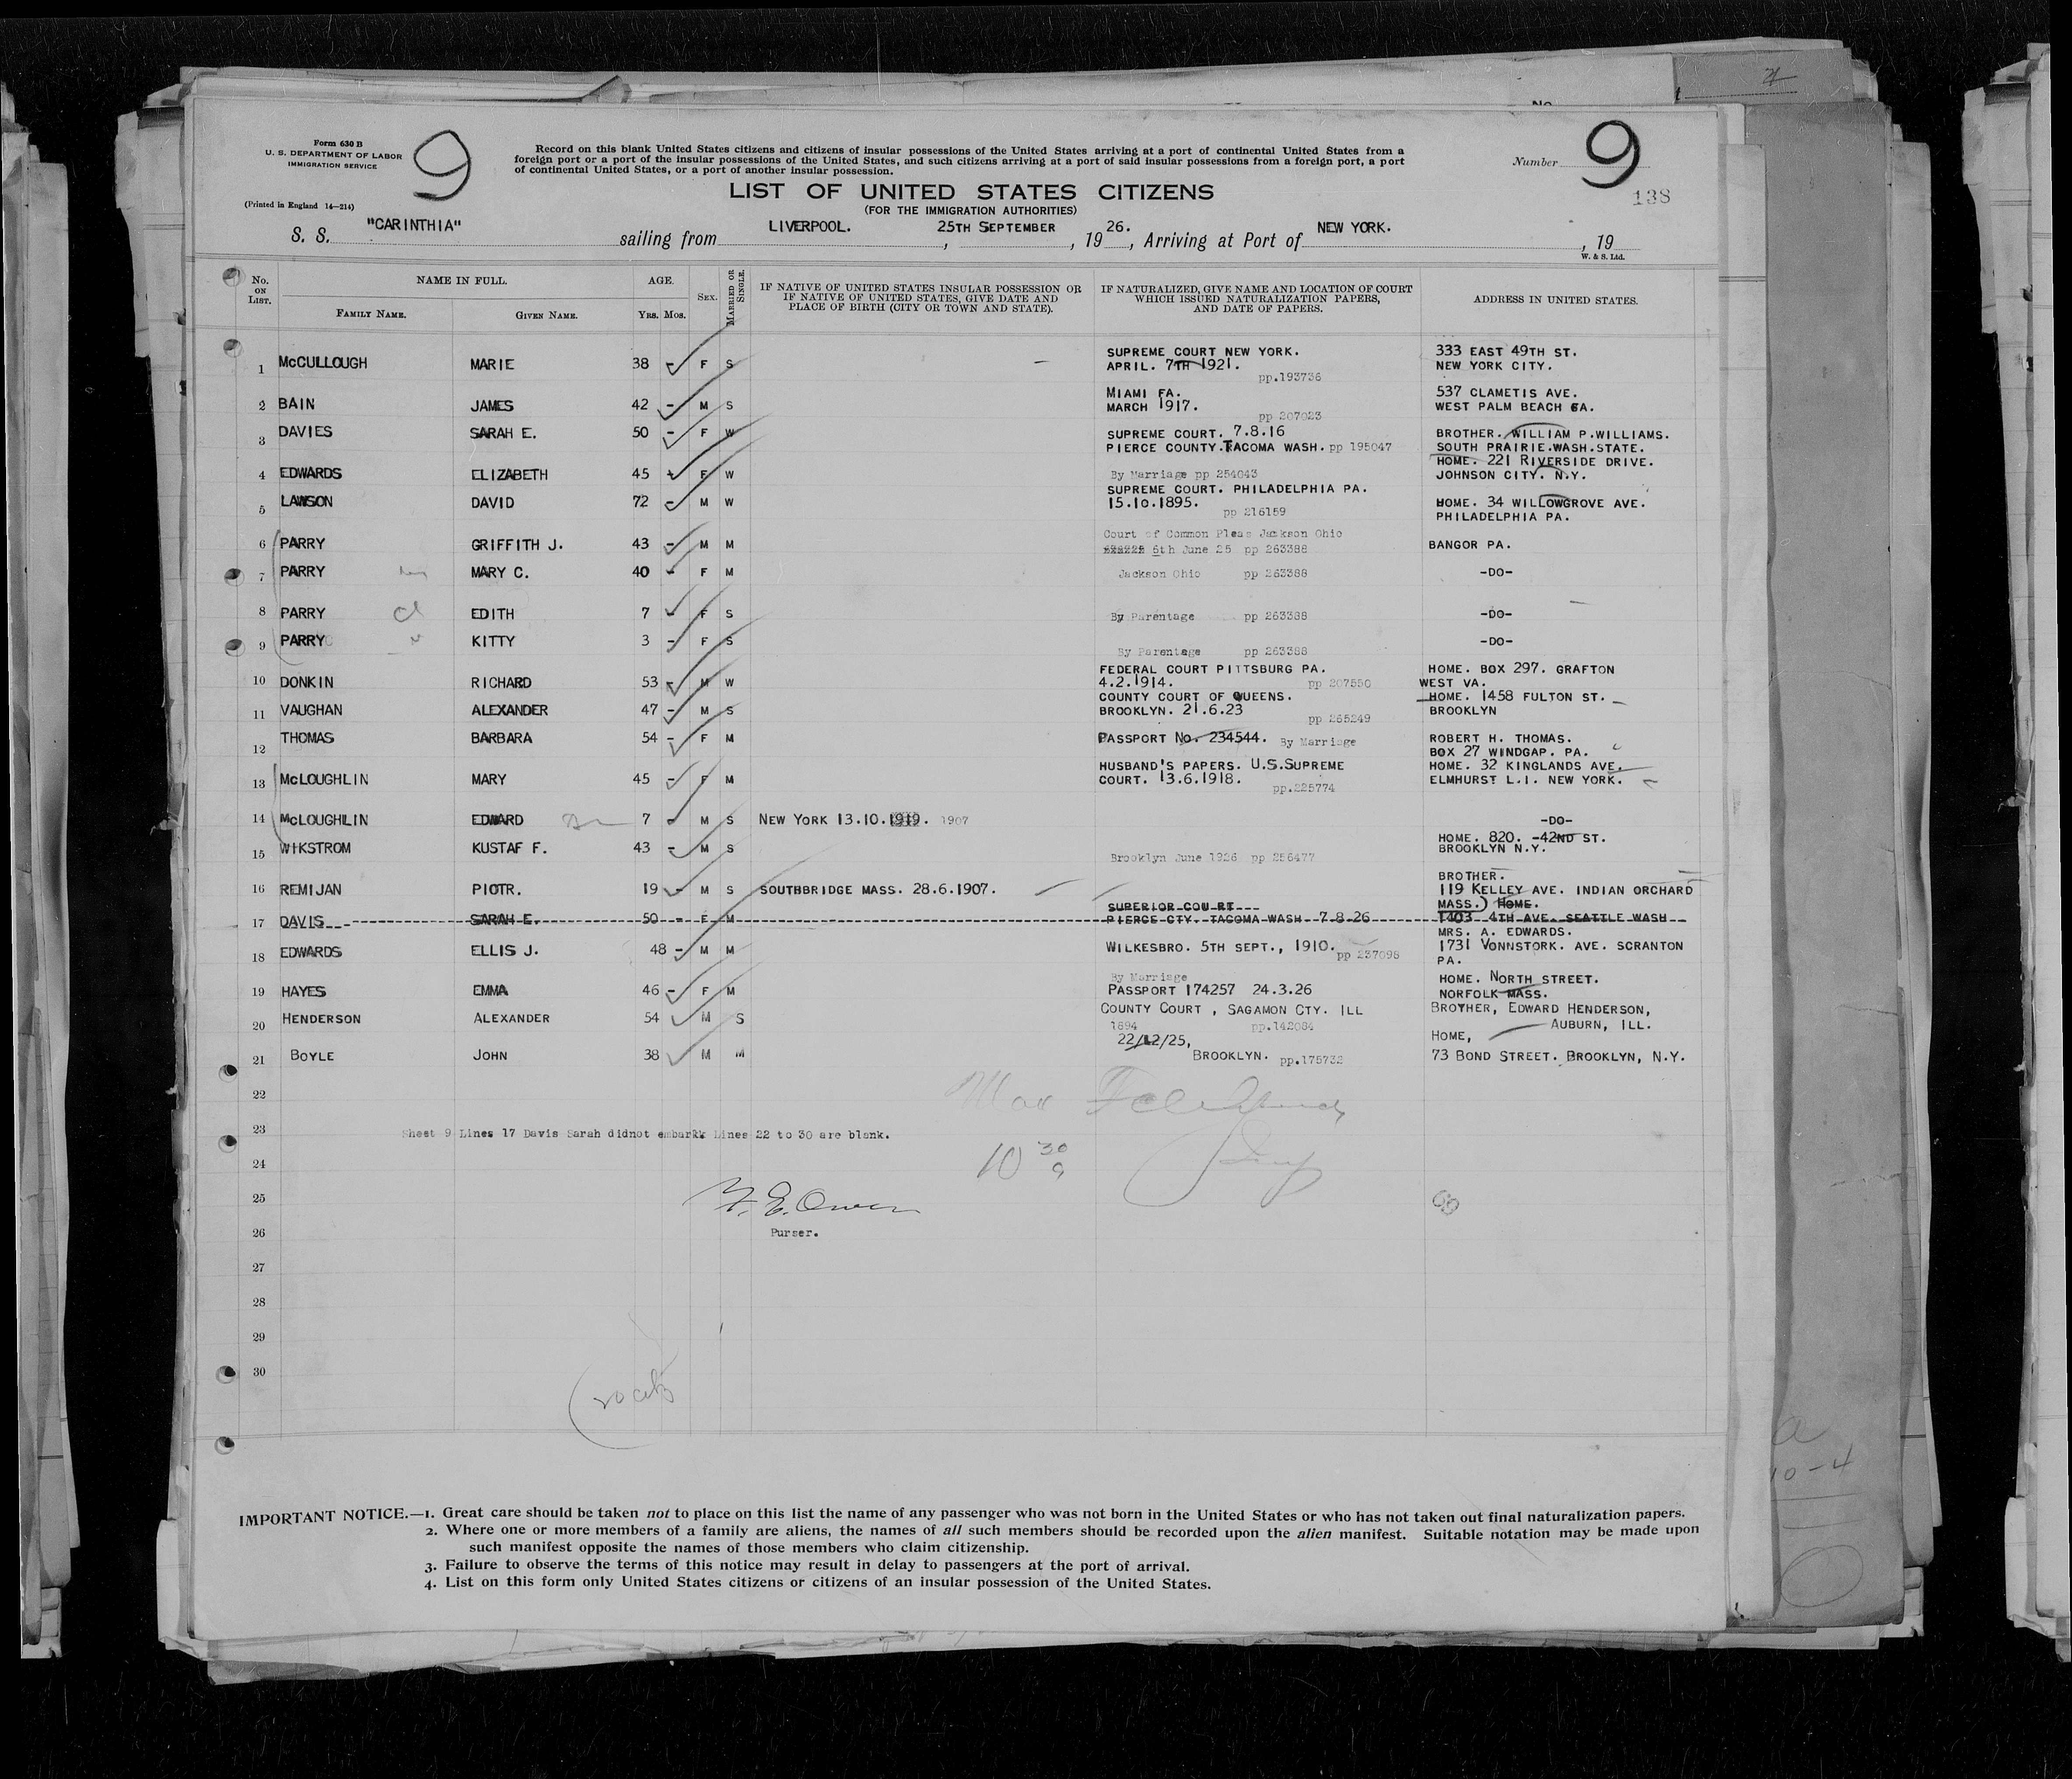 Form 630 B
U. S. DEPARTMENT OF LABOR
IMMIGRATION SERVICE
9
Record on this blank United States citizens and citizens of insular possessions of the United States arriving at a port of continental United States from a
foreign port or a port of the insular possessions of the United States, and such citizens arriving at a port of said insular possessions from a foreign port, a port
of continental United States, or a port of another insular possession.
Number 9
138
LIST OF UNITED STATES CITIZENS
(FOR THE IMMIGRATION AUTHORITIES)
(Printed in England 14—214)
S. S. "CARINTHIA" sailing from LIVERPOOL. , 25TH SEPTEMBER , 19 26. , Arriving at Port of NEW YORK. , 19
W. & S. Ltd.
No. ON LIST. NAME IN FULL. AGE. SEX. MARRIED OR SINGLE. IF NATIVE OF UNITED STATES INSULAR POSSESSION OR IF NATIVE OF UNITED STATES, GIVE DATE AND PLACE OF BIRTH (CITY OR TOWN AND STATE). IF NATURALIZED, GIVE NAME AND LOCATION OF COURT WHICH ISSUED NATURALIZATION PAPERS, AND DATE OF PAPERS. ADDRESS IN UNITED STATES.
FAMILY NAME. GIVEN NAME. YRS. MOS.
1 McCULLOUGH MARIE 38 - F S - SUPREME COURT NEW YORK. 333 EAST 49TH ST.
APRIL. 7TH 1921. NEW YORK CITY.
pp.193736
2 BAIN JAMES 42 - M S MIAMI FA. 537 CLAMETIS AVE.
MARCH 1917. WEST PALM BEACH FA.
pp 207023
3 DAVIES SARAH E. 50 - F W SUPREME COURT. 7.8.16 BROTHER. WILLIAM P.WILLIAMS.
PIERCE COUNTY.TACOMA WASH. pp 195047 SOUTH PRAIRIE.WASH.STATE.
4 EDWARDS ELIZABETH 45 - F W By Marriage pp 254043 HOME. 221 RIVERSIDE DRIVE.
JOHNSON CITY. N.Y.
5 LAWSON DAVID 72 - M W SUPREME COURT. PHILADELPHIA PA.
15.10.1895. HOME. 34 WILLOWGROVE AVE.
pp 216159 PHILADELPHIA PA.
6 PARRY GRIFFITH J. 43 - M M Court of Common Pleas Jackson Ohio BANGOR PA.
6th June 25 pp 263388
7 PARRY MARY C. 40 - F M Jackson Ohio pp 263388 -DO-
8 PARRY EDITH 7 - F S By Parentage pp 263388 -DO-
9 PARRY KITTY 3 - F S By Parentage pp 263388 -DO-
10 DONKIN RICHARD 53 - M W FEDERAL COURT PITTSBURG PA. HOME. BOX 297. GRAFTON
4.2.1914. pp 207550 WEST VA.
11 VAUGHAN ALEXANDER 47 - M S COUNTY COURT OF QUEENS. HOME. 1458 FULTON ST.
BROOKLYN. 21.6.23 pp 265249 BROOKLYN
12 THOMAS BARBARA 54 - F M PASSPORT No. 234544. By Marriage ROBERT H. THOMAS.
BOX 27 WINDGAP. PA.
13 McLOUGHLIN MARY 45 - F M HUSBAND'S PAPERS. U.S.SUPREME HOME. 32 KINGLANDS AVE.
COURT. 13.6.1918. ELMHURST L.I. NEW YORK.
pp.225774
14 McLOUGHLIN EDWARD 7 - M S NEW YORK 13.10.1919. 1907 -DO-
15 WIKSTROM KUSTAF F. 43 - M S Brooklyn June 1926 pp 256477 HOME. 820. -42ND ST.
BROOKLYN N.Y.
16 REMIJAN PIOTR. 19 - M S SOUTHBRIDGE MASS. 28.6.1907. BROTHER.
119 KELLEY AVE. INDIAN ORCHARD
MASS.) HOME.
17 DAVIS SARAH E. 50 - F M SUPERIOR COURT
PIERCE CTY. TACOMA WASH 7.8.26 1403 4TH AVE. SEATTLE WASH
18 EDWARDS ELLIS J. 48 - M M WILKESBRO. 5TH SEPT., 1910. pp 237098 MRS. A. EDWARDS.
1731 VONNSTORK. AVE. SCRANTON
PA.
19 HAYES EMMA 46 - F M By Marriage HOME. NORTH STREET.
PASSPORT 174257 24.3.26 NORFOLK MASS.
20 HENDERSON ALEXANDER 54 M S COUNTY COURT , SAGAMON CTY. ILL BROTHER, EDWARD HENDERSON,
1894 pp.142084 AUBURN, ILL.
21 BOYLE JOHN 38 M M 22/12/25, HOME,
BROOKLYN. pp.175732 73 BOND STREET. BROOKLYN, N.Y.
22
23 Sheet 9 Lines 17 Davis Sarah didnot embark Lines 22 to 30 are blank.
24 10 30 a
25
Purser.
26
27
28
29
30
IMPORTANT NOTICE.—1. Great care should be taken not to place on this list the name of any passenger who was not born in the United States or who has not taken out final naturalization papers.
2. Where one or more members of a family are aliens, the names of all such members should be recorded upon the alien manifest. Suitable notation may be made upon
such manifest opposite the names of those members who claim citizenship.
3. Failure to observe the terms of this notice may result in delay to passengers at the port of arrival.
4. List on this form only United States citizens or citizens of an insular possession of the United States.